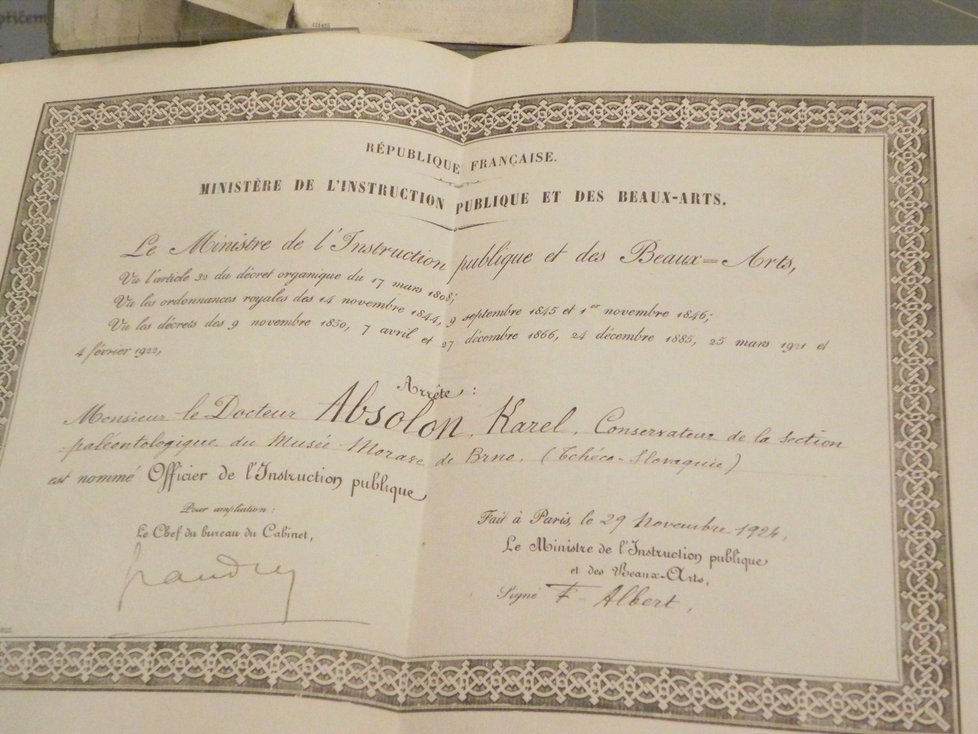 přičem
RÉPUBLIQUE FRANÇAISE.
MINISTÈRE DE L'INSTRUCTION PUBLIQUE ET DES BEAUX-ARTS.
Le Ministre de l'Instruction publique et des Beaux=Arts,
Vu l'article 32 du décret organique du 17 mars 1808;
Vu les ordonnances royales des 14 novembre 1844, 9 septembre 1845 et 1er novembre 1846;
Vu les décrets des 9 novembre 1850, 7 avril et 27 décembre 1866, 24 décembre 1885, 25 mars 1921 et
4 février 1922,
Arrête :
Monsieur le Docteur Absolon, Karel, Conservateur de la section
paléontologique du Musée Morave de Brno. (Tchéco-Slovaquie)
est nommé Officier de l'Instruction publique
Pour ampliation :
Le Chef du bureau du Cabinet,
Fait à Paris, le 29 Novembre 1924,
Le Ministre de l'Instruction publique
et des Beaux-Arts,
Signé F. Albert,